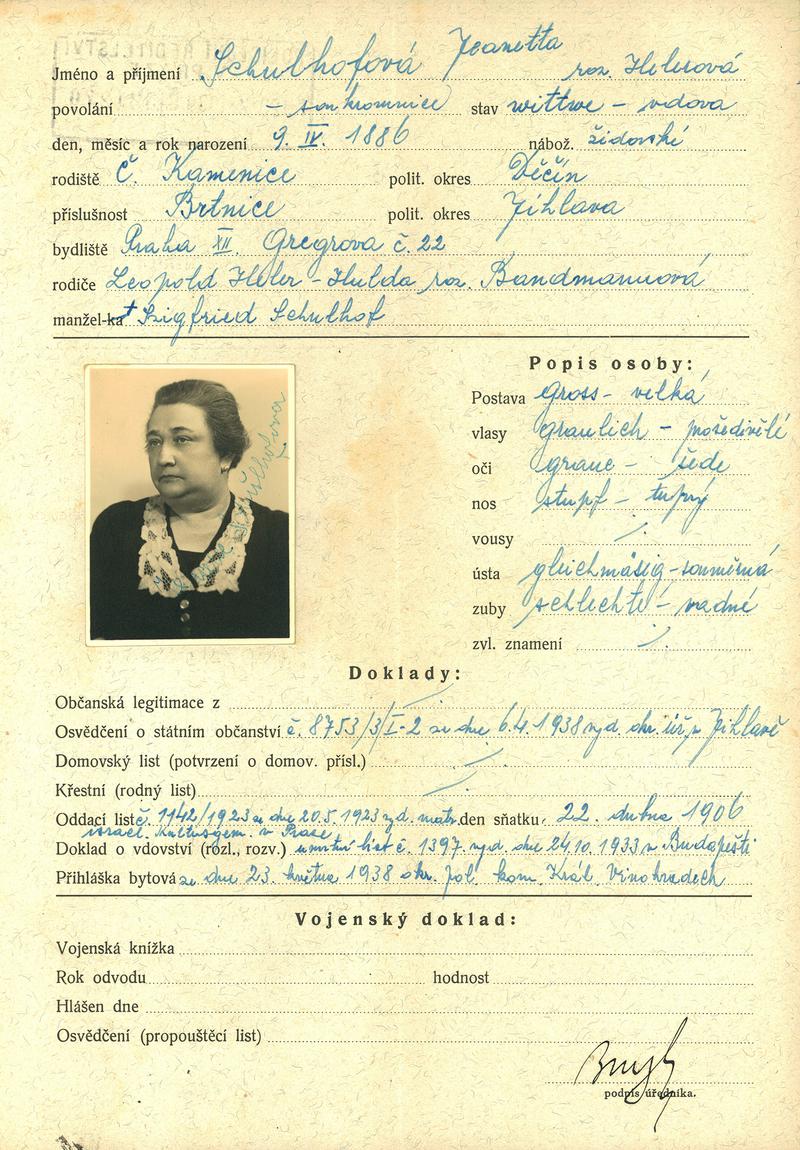 Jméno a příjmení Schulhofová Jeanetta roz. Helerová
povolání - soukromnice stav wittwe - vdova
den, měsíc a rok narození 9. IV. 1886 nábož. židovské
rodiště Č. Kamenice polit. okres Děčín
příslušnost Brtnice polit. okres Jihlava
bydliště Praha XII. Gregrova č. 22
rodiče Leopold Heler - Hulda roz. Bandmannová
manžel-ka † Szigfried Schulhof
Popis osoby:
Postava gross - velká
vlasy graulich - prošedivělé
oči graue - šedé
nos stupf - tupý
vousy
ústa gleichmäsig - souměrná
zuby schlechte - vadné
zvl. znamení
Doklady:
Občanská legitimace z
Osvědčení o státním občanství č. 8753/3/I-2 ze dne 6.4.1938 vyd. okr. úř. v Jihlavě
Domovský list (potvrzení o domov. přísl.)
Křestní (rodný list)
Oddací list č. 1142/1923 ze dne 20.5.1923 vyd. matr. den sňatku: 22. dubna 1906
israel. Kultusgem. v Praze
Doklad o vdovství (rozl., rozv.) úmrtní list č. 1397. vyd. dne 24.10.1933 v Budapešti
Přihláška bytová ze dne 23. května 1938 okr. pol. kom. Král. Vinohradech
Vojenský doklad:
Vojenská knížka
Rok odvodu hodnost
Hlášen dne
Osvědčení (propouštěcí list)
podpis úředníka.